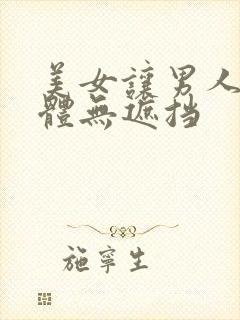 美女讓男人
體無遮挡
施寧生